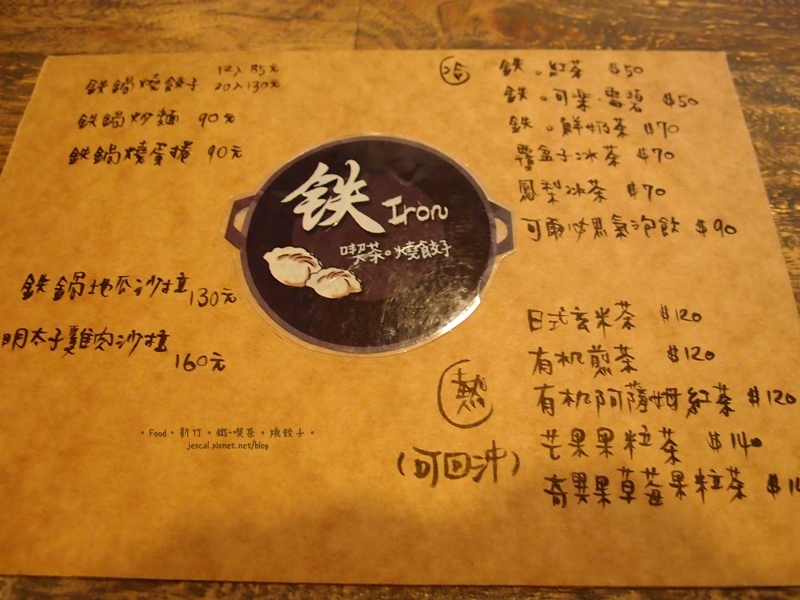 12入 85元
鉄鍋燒餃子 20入130元
鉄鍋炒麵 90元
鉄鍋燒蛋捲 90元
鉄鍋地瓜沙拉 130元
明太子雞肉沙拉 160元
鉄 Iron
喫茶。燒餃子
冷
鉄。紅茶 $50
鉄。可樂.雪碧 $50
鉄。鮮奶茶 $70
覆盆子冰茶 $70
鳳梨冰茶 $70
可爾必思氣泡飲 $90
熱
(可回沖)
日式玄米茶 $120
有机煎茶 $120
有机阿薩姆紅茶 $120
芒果果粒茶 $140
奇異果草莓果粒茶
。Food。新竹。鐵-喫茶。燒餃子。
jescal.pixnet.net/blog